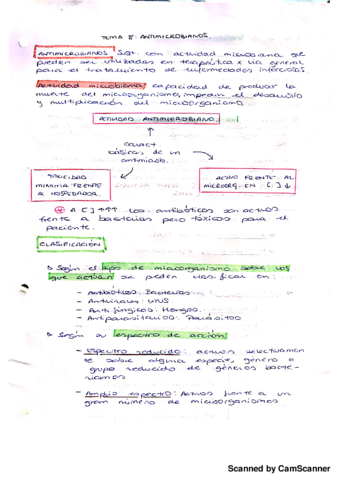 TEMA 8: ANTIMICROBIANOS.
ANTIMICROBIANOS Sust. con actividad microbiana que
pueden ser utilizados en terapéutica x vía general
para el tratamiento de enfermedades infecciosas
Actividad microbiana: capacidad de producir la
muerte del microorganismo, impedir el desarrollo
y multiplicación del microorganismo.
ACTIVIDAD ANTIMICROBIANA.
caract.
básicas, de un
antimicrob.
TOXICIDAD
MÍNIMA FRENTE
AL HOSPEDADOR.
ACTIVO FRENTE AL
MICROORG. EN [ ] ↓.
A [ ] ↑↑↑ los antibióticos son activos
frente a bacterias pero tóxicos para el
paciente.
CLASIFICACIÓN
Según el tipo de microorganismo sobre los
que actúan se pueden clasificar en:
- Antibióticos: Bacterias
- Antivirales: Virus.
- Antifúngicos: Hongos.
- Antiparasitarios: Parásitos
Según su espectro de acción:
- Espectro reducido: activos selectivamen
te sobre alguna especie, género o
grupo reducido de géneros bacte-
rianos
- Amplio espectro: Activos frente a un
gran número de microorganismos
Scanned by CamScanner